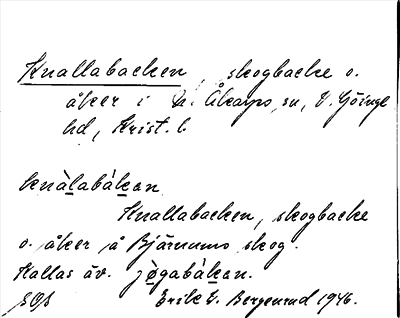 Knallabacken, skogbacke o.
åker i N. Åkarps sn, V. Göinge
hd, Krist. l.
knàlabákan
Knallabacken, skogbacke
o. åker å Bjärnums skog.
Kallas äv. jøgabákan.
Erik G. Bergenrud 1946.